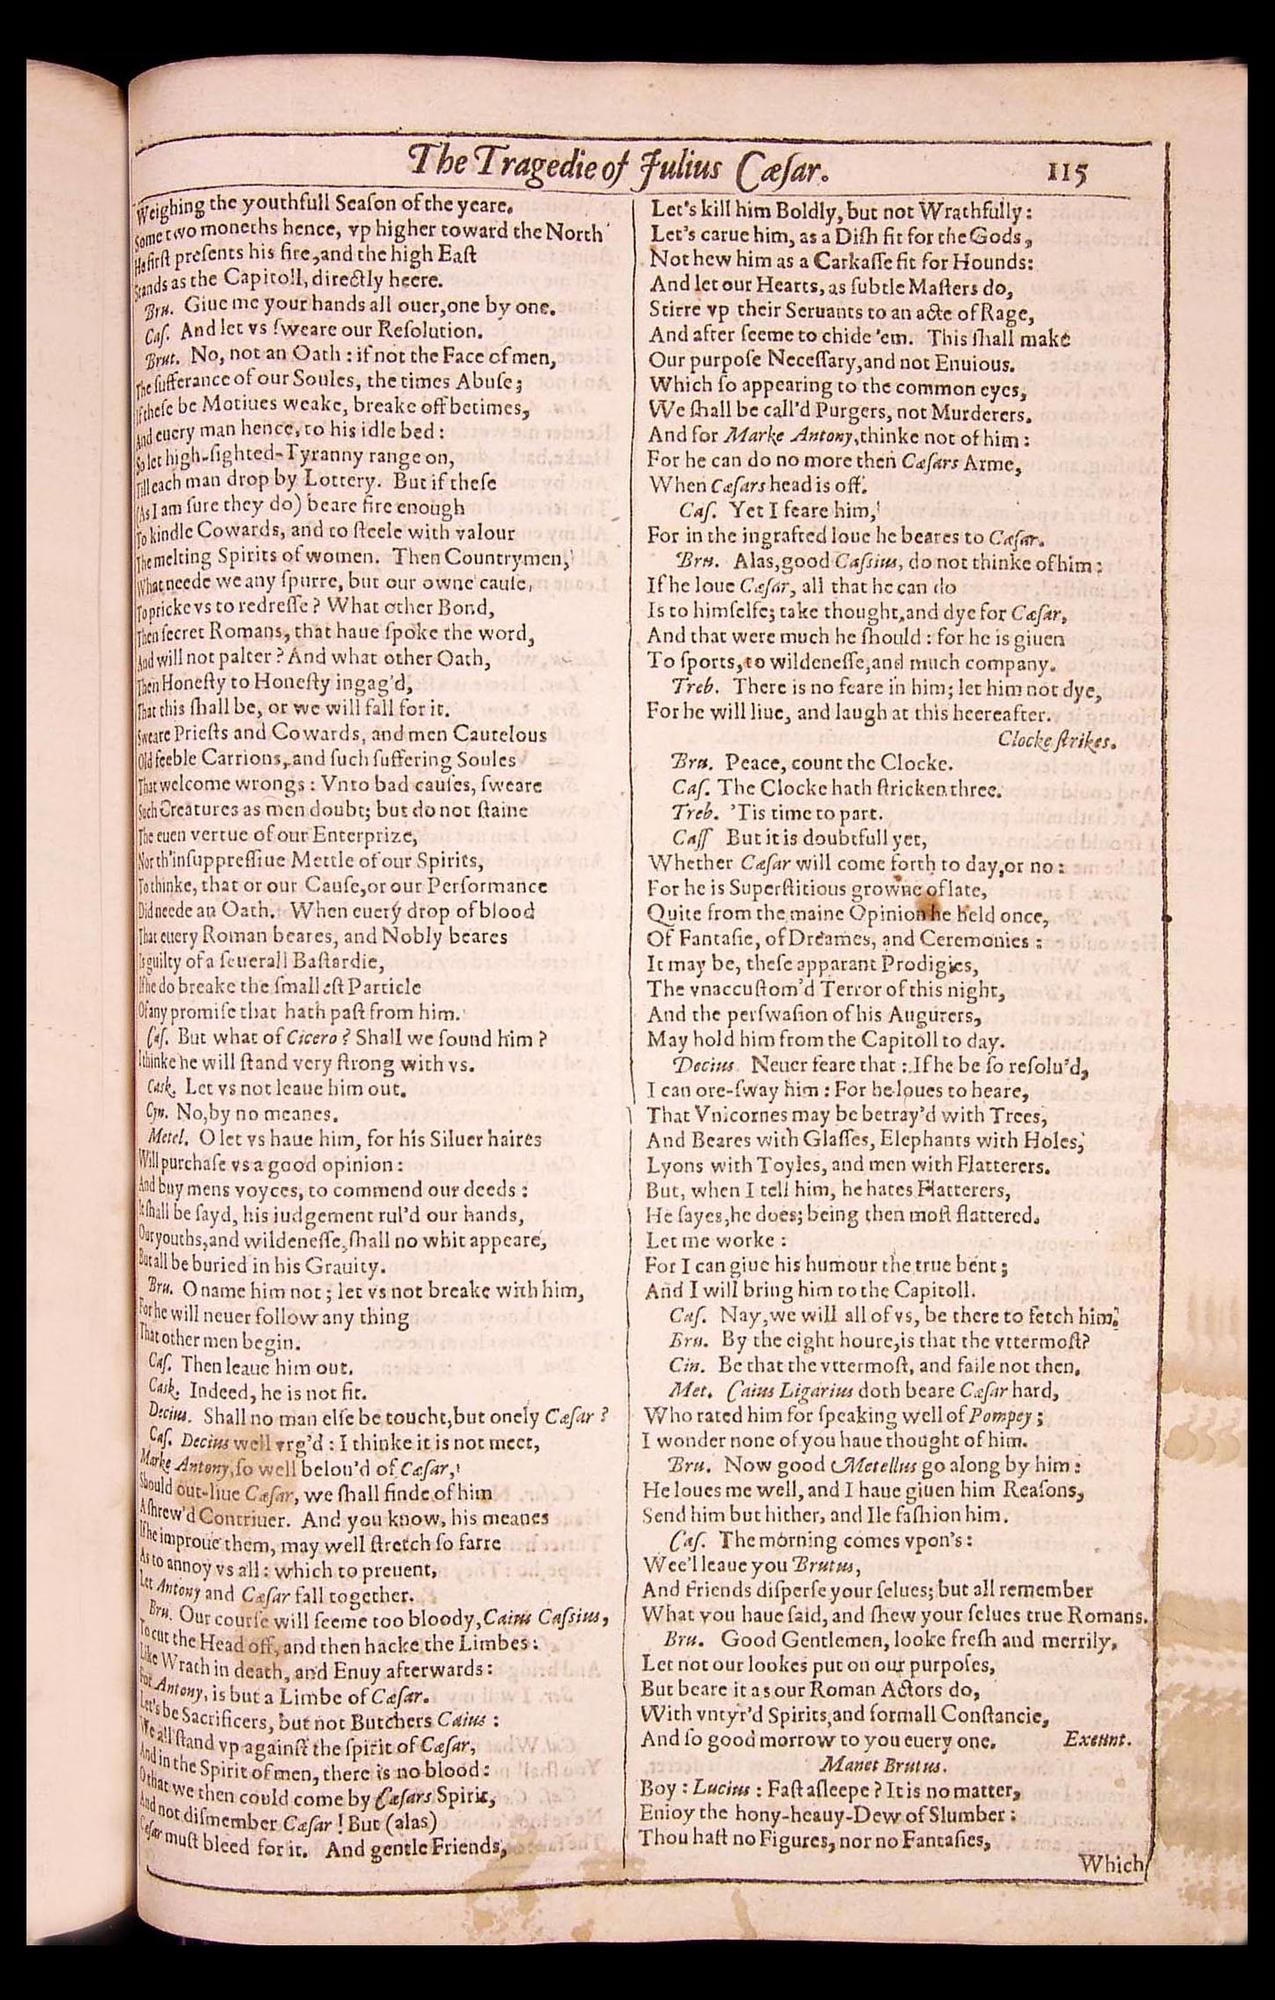 The Tragedie of Julius Cæſar. 115
Weighing the youthfull Seaſon of the yeare.
Some two moneths hence, vp higher toward the North
He firſt preſents his fire, and the high Eaſt
Stands as the Capitoll, directly heere.
Bru. Giue me your hands all ouer, one by one.
Caſ. And let vs ſweare our Reſolution.
Brut. No, not an Oath : if not the Face of men,
The ſufferance of our Soules, the times Abuſe;
If theſe be Motiues weake, breake off betimes,
And euery man hence, to his idle bed :
So let high-ſighted-Tyranny range on,
Till each man drop by Lottery. But if theſe
(As I am ſure they do) beare fire enough
To kindle Cowards, and to ſteele with valour
The melting Spirits of women. Then Countrymen,
What neede we any ſpurre, but our owne cauſe,
To pricke vs to redreſſe ? What other Bond,
Then ſecret Romans, that haue ſpoke the word,
And will not palter ? And what other Oath,
Then Honeſty to Honeſty ingag'd,
That this ſhall be, or we will fall for it.
Sweare Prieſts and Cowards, and men Cautelous
Old feeble Carrions, and ſuch ſuffering Soules
That welcome wrongs : Vnto bad cauſes, ſweare
Such Creatures as men doubt; but do not ſtaine
The euen vertue of our Enterprize,
Nor th'inſuppreſſiue Mettle of our Spirits,
To thinke, that or our Cauſe, or our Performance
Did neede an Oath. When euery drop of blood
That euery Roman beares, and Nobly beares
Is guilty of a ſeuerall Baſtardie,
If he do breake the ſmalleſt Particle
Of any promiſe that hath paſt from him.
Caſ. But what of Cicero ? Shall we ſound him ?
I thinke he will ſtand very ſtrong with vs.
Cask. Let vs not leaue him out.
Cyn. No, by no meanes.
Metel. O let vs haue him, for his Siluer haires
Will purchaſe vs a good opinion :
And buy mens voyces, to commend our deeds :
It ſhall be ſayd, his iudgement rul'd our hands,
Our youths, and wildeneſſe, ſhall no whit appeare,
But all be buried in his Grauity.
Bru. O name him not ; let vs not breake with him,
For he will neuer follow any thing
That other men begin.
Caſ. Then leaue him out.
Cask. Indeed, he is not fit.
Decius. Shall no man elſe be toucht, but onely Cæſar ?
Caſ. Decius well vrg'd : I thinke it is not meet,
Marke Antony, ſo well belou'd of Cæſar,
Should out-liue Cæſar, we ſhall finde of him
A ſhrew'd Contriuer. And you know, his meanes
If he improue them, may well ſtretch ſo farre
As to annoy vs all : which to preuent,
Let Antony and Cæſar fall together.
Bru. Our courſe will ſeeme too bloody, Caius Caſsius,
To cut the Head off, and then hacke the Limbes :
Like Wrath in death, and Enuy afterwards :
For Antony, is but a Limbe of Cæſar.
Let's be Sacrificers, but not Butchers Caius :
We all ſtand vp againſt the ſpirit of Cæſar,
And in the Spirit of men, there is no blood :
O that we then could come by Cæſars Spirit,
And not diſmember Cæſar ! But (alas)
Cæſar muſt bleed for it. And gentle Friends,
Let's kill him Boldly, but not Wrathfully :
Let's carue him, as a Diſh fit for the Gods,
Not hew him as a Carkaſſe fit for Hounds :
And let our Hearts, as ſubtle Maſters do,
Stirre vp their Seruants to an acte of Rage,
And after ſeeme to chide 'em. This ſhall make
Our purpoſe Neceſſary, and not Enuious.
Which ſo appearing to the common eyes,
We ſhall be call'd Purgers, not Murderers.
And for Marke Antony, thinke not of him :
For he can do no more then Cæſars Arme,
When Cæſars head is off.
Caſ. Yet I feare him,
For in the ingrafted loue he beares to Cæſar.
Bru. Alas, good Caſsius, do not thinke of him :
If he loue Cæſar, all that he can do
Is to himſelfe; take thought, and dye for Cæſar,
And that were much he ſhould : for he is giuen
To ſports, to wildeneſſe, and much company.
Treb. There is no feare in him; let him not dye,
For he will liue, and laugh at this heereafter.
Clocke ſtrikes.
Bru. Peace, count the Clocke.
Caſ. The Clocke hath ſtricken three.
Treb. 'Tis time to part.
Caſſ But it is doubtfull yet,
Whether Cæſar will come forth to day, or no :
For he is Superſtitious growne of late,
Quite from the maine Opinion he held once,
Of Fantaſie, of Dreames, and Ceremonies :
It may be, theſe apparant Prodigies,
The vnaccuſtom'd Terror of this night,
And the perſwaſion of his Augurers,
May hold him from the Capitoll to day.
Decius. Neuer feare that : If he be ſo reſolu'd,
I can ore-ſway him : For he loues to heare,
That Vnicornes may be betray'd with Trees,
And Beares with Glaſſes, Elephants with Holes,
Lyons with Toyles, and men with Flatterers.
But, when I tell him, he hates Flatterers,
He ſayes, he does; being then moſt flattered.
Let me worke :
For I can giue his humour the true bent ;
And I will bring him to the Capitoll.
Caſ. Nay, we will all of vs, be there to fetch him.
Bru. By the eight houre, is that the vttermoſt?
Cin. Be that the vttermoſt, and faile not then.
Met. Caius Ligarius doth beare Cæſar hard,
Who rated him for ſpeaking well of Pompey ;
I wonder none of you haue thought of him.
Bru. Now good Metellus go along by him :
He loues me well, and I haue giuen him Reaſons,
Send him but hither, and Ile faſhion him.
Caſ. The morning comes vpon's :
Wee'l leaue you Brutus,
And Friends diſperſe your ſelues; but all remember
What you haue ſaid, and ſhew your ſelues true Romans.
Bru. Good Gentlemen, looke freſh and merrily,
Let not our lookes put on our purpoſes,
But beare it as our Roman Actors do,
With vntyr'd Spirits, and formall Conſtancie,
And ſo good morrow to you euery one. Exeunt.
Manet Brutus.
Boy : Lucius : Faſt aſleepe ? It is no matter,
Enioy the hony-heauy-Dew of Slumber :
Thou haſt no Figures, nor no Fantaſies,
Which